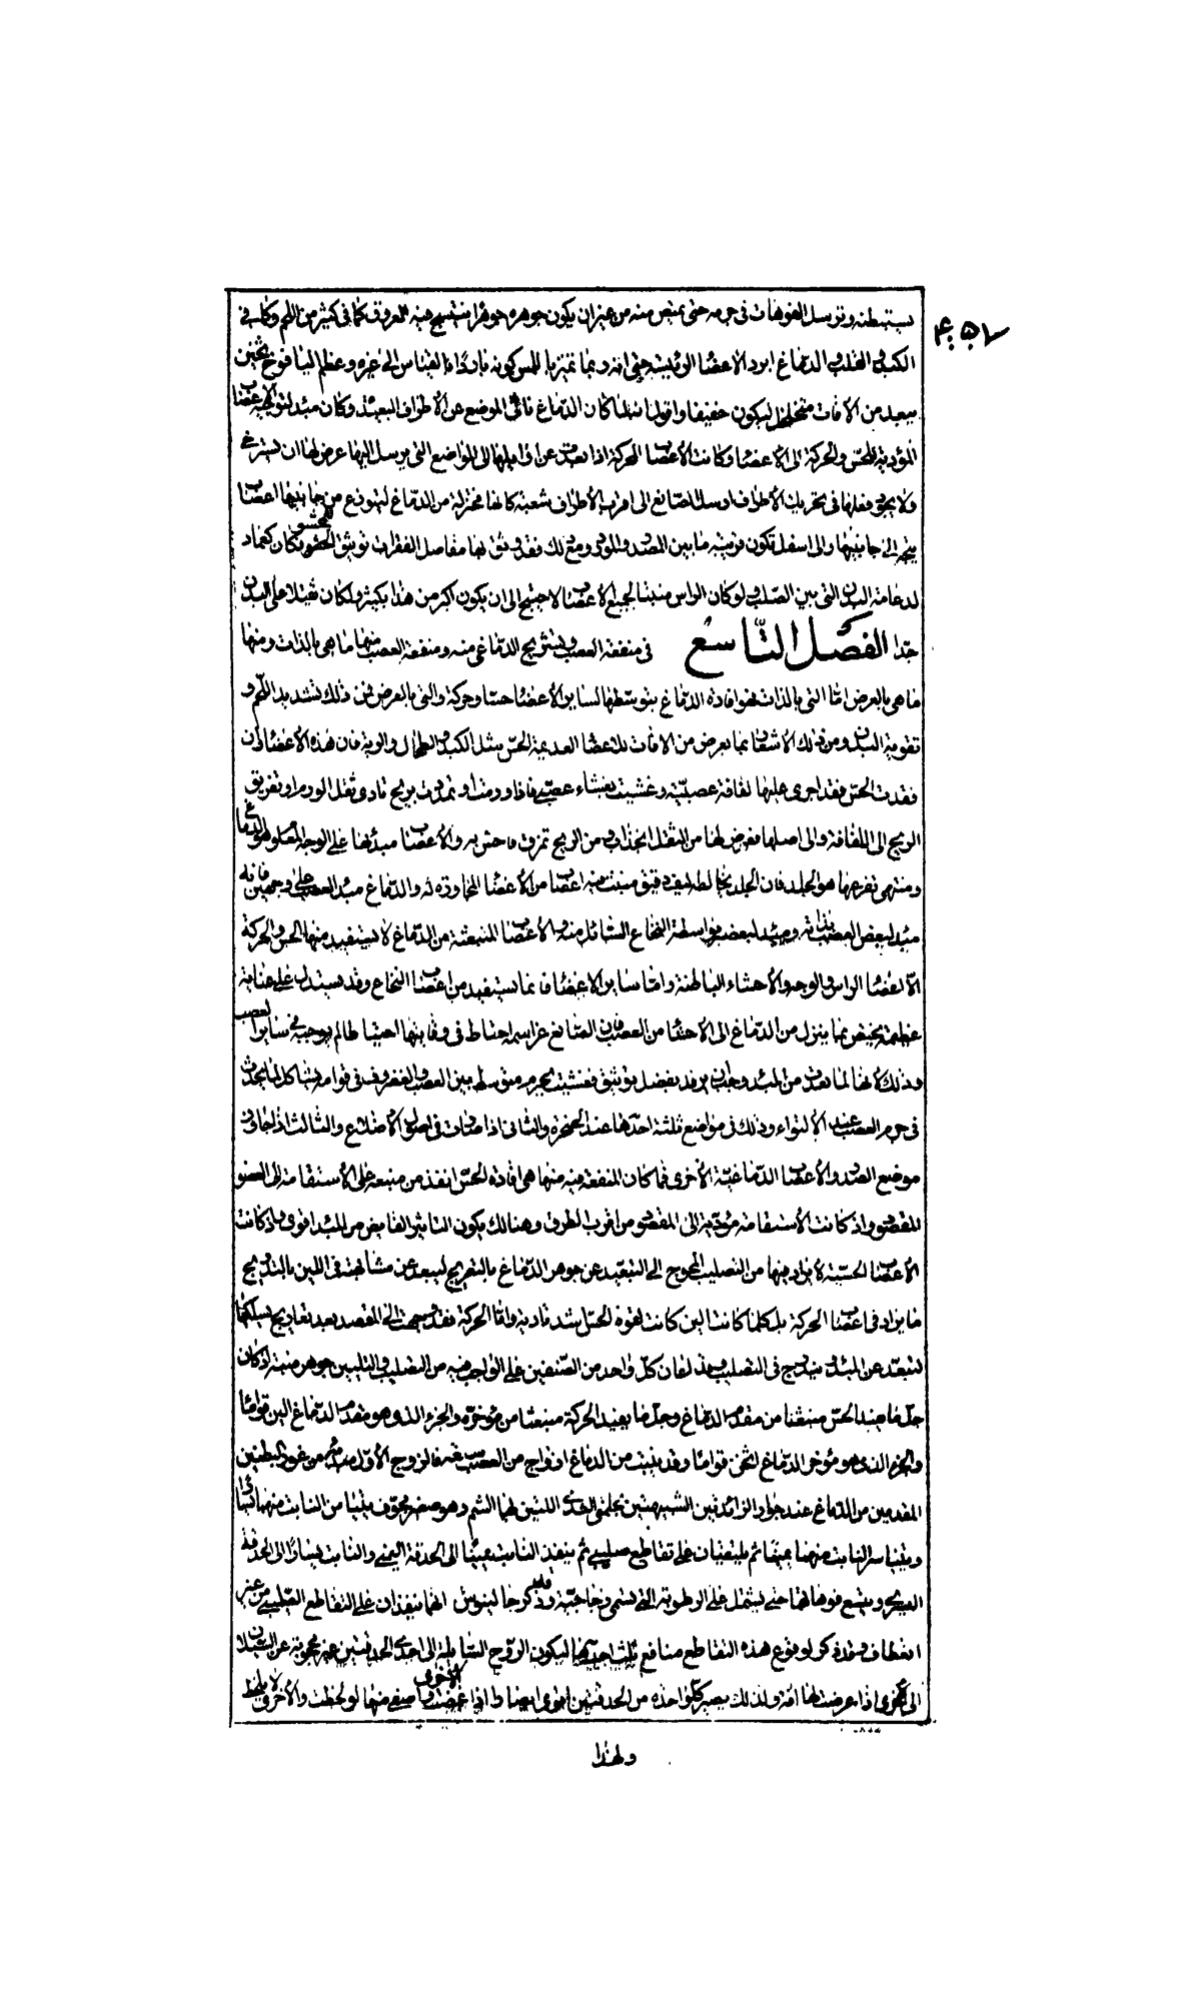 يستبطنه وترسل الفوهات في جرمه حتى يمتص منه من غير ان يكون جوهره جوهرا منتسج فيه العروق كما في كثير من اللحم وكما في
الكبد والقلب والدماغ ابرد الاعضا الرئيسة حتى انه ربما تميز باللمس كونه باردا بالقياس الى غيره وعظم اليافوخ
يبعد من الافات متخلخل ليكون خفيفا واقول انه لما كان الدماغ في الموضع عن الاطراف البعيدة وكان مبدا الاعصاب
المؤدية للحس والحركة الى الاعضا وكانت الاعصاب المحركة اذا بعدت عن اوايلها الى المواضع التي يرسل اليها عرض لها ان يسترخي
ولا يجود فعلها في تحريك الاطراف ارسل الصانع الى اقرب الاطراف شعبة كانها مختزلة من الدماغ ليتوزع من جانبيها اعصاب
يتجه الى جانبيها والى اسفل تكون قريبة ما بين المصدر والمورد ومع ذلك فقد وثق لها مفاصل الفقرات توثيق الحشو فكان كعماد
لدعامة البدن التي هي الصلب ولو كان الراس منبتا لجميع الاعصاب لاحتيج الى ان يكون اكبر من هذا بكثير ولكان ثقيلا على البدن
جدا الفصل التاسع في منفعة العصب وتشريح الدماغي منه ومنفعة العصب منها ما هي بالذات ومنها
ما هي بالعرض اما التي بالذات فهو افادة الدماغ بتوسطها لساير الاعضا حسا وحركة والتي بالعرض فمن ذلك تشديد اللحم و
تقوية البدن ومن ذلك الاشعار بما يعرض من الافات للاعضا العديمة الحس مثل الكبد والطحال والرية فان هذه الاعضا وان
فقدت الحس فقد اجرى عليها لفافة عصبية وغشيت بغشاء عصبي فاذا ورمت او تمددت بريح تادى ثقل الورم او تفريق
الريح الى اللفافة والى اصلها فعرض لها من الثقل انجذاب ومن الريح تمزق فاحس به والاعصاب مبدئها على الوجه المعلوم هو الدماغ
ومنتهى تفرعها هو الجلد فان الجلد يخالطه ليف دقيق منبث فيه اعصاب من الاعضا المجاورة له والدماغ مبدا العصب على وجهين فانه
مبدا لبعض العصب بذاته ومبدا لبعضه بواسطة النخاع السائل منه والاعصاب المنبعثة من الدماغ لا يستفيد منها الحس والحركة
الا اعضا الراس والوجه والاحشاء الباطنة واما ساير الاعضا فانما يستفيد من اعصاب النخاع وقد يستدل على عناية
عظيمة يختص بما ينزل من الدماغ الى الاحشا من العصب فان الصانع عز اسمه احتاط في وقايتها احتياطا لم يوجبه في ساير العصب
وذلك لانها لما بعدت من المبدا وجب ان يرفد بفضل توثيق فغشيت بجرم متوسط بين العصب والغضروف في قوامه يشاكل لما يحدث
في جرم العصب عند الالتواء وذلك في مواضع ثلثة احدها عند الحنجرة والثاني اذا صارت في اصول الاضلاع والثالث اذا جاوز
موضع الصدر والاعصاب الدماغية الاخرى فما كان المنفعة فيه منها هي افادة الحس انفذ من منبعه على الاستقامة الى العضو
المقصود اذ كانت الاستقامة مؤدية الى المقصود من اقرب الطرق وهنالك يكون التاثير الفايض من المبدا اقوى واذ كانت
الاعصاب الحسية لا يراد فيها من التصليب المحوج الى التبعيد عن جوهر الدماغ بالتعريج ليبعد عن مشابهته في اللين بالتدريج
ما يراد في اعصاب الحركة بل كلما كانت الين كانت لقوة الحس اشد تادية واما الحركة فقد وجهت الى المقصد بعد تعاريج يسلكها
لتبعد عن المبدا ويتدرج في التصليب وقد اعان كل واحد من الصنفين على الواجب فيه من التصليب والتليين جوهر منبته اذ كان
جل ما يفيد الحس منبعثا من مقدم الدماغ وجل ما يفيد الحركة منبعثا من مؤخره والجزء الذي هو مقدم الدماغ الين قواما
والجزء الذي هو مؤخر الدماغ اثخن قواما وقد ينبت من الدماغ ازواج من العصب سبعة فالزوج الاول مبدؤه من غور البطنين
المقدمين من الدماغ عند جواز الزائدتين الشبيهتين بحلمتي الثدي اللتين لهما الشم وهو صغير مجوف يتيامن النابت منهما يسارا
ويتياسر النابت منهما يمينا ثم يلتقيان على تقاطع صليبي ثم ينفذ النابت يمينا الى الحدقة اليمنى والنابت يسارا الى الحدقة
اليسرى ويتسع فوهاتهما حتى يشتمل على الرطوبة التي تسمى زجاجية وقد ذكر جالينوس انهما ينفذان على التقاطع الصليبي من غير
انعطاف وقد ذكر لوقوع هذه التقاطع منافع ثلث احديها ليكون الروح السايلة الى احدى الحدقتين غير محجوبة عن السيلان
الى الاخرى اذا عرضت لها افة ولذلك يصير كل واحدة من الحدقتين اقوى ابصارا اذا غمضت الاخرى واصفى منها لو لحظت والاخرى لا يلحظ
ولهذا